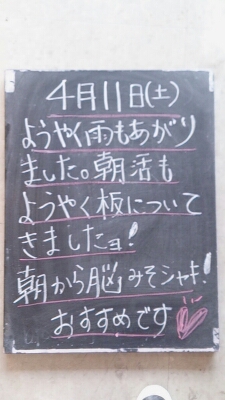 4月11日(土)
ようやく雨もあがり
ました。朝活も
ようやく板について
きましたョ!
朝から脳みそシャキ!
おすすめです